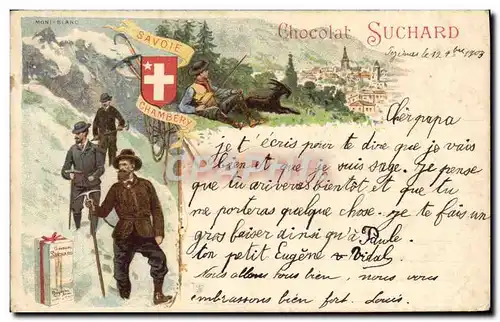 MONT-BLANC
Chocolat SUCHARD
SAVOIE
CHAMBÉRY
le 19 1903
Cher papa
je t'écris pour te dire que je vais
bien et que je suis sage. Je pense
que tu arriveras bientôt et que tu
me porteras quelque chose. Je te fais un
gros baiser ainsi qu'à Paule.
ton petit Eugène Vidal
Nous allons tous bien, nous vous
embrassons bien fort. Louis.
SUCHARD